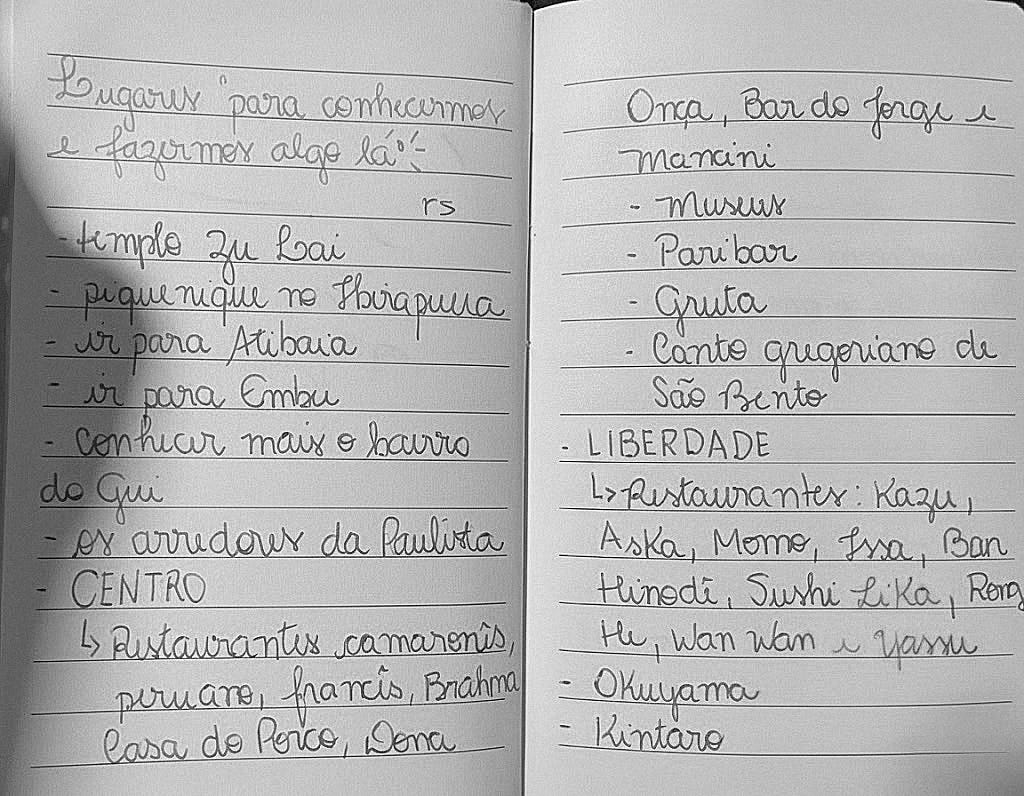 Lugares "para conhecermos
e fazermos algo lá":
rs
- templo Zu Lai
- piquenique no Ibirapuera
- ir para Atibaia
- ir para Embu
- conhecer mais o bairro
do Gui
- os arredores da Paulista
- CENTRO
↳ Restaurantes camaronês,
peruano, francês, Brahma
Casa do Porco, Dona
Onça, Bar do Jorge e
Mancini
- Museus
- Paribar
- Gruta
- Canto gregoriano de
São Bento
- LIBERDADE
↳ Restaurantes: Kazu,
Aska, Momo, Issa, Ban
Hinodê, Sushi Lika, Rong
He, Wan Wan e Yassu
- Okuyama
- Kintaro